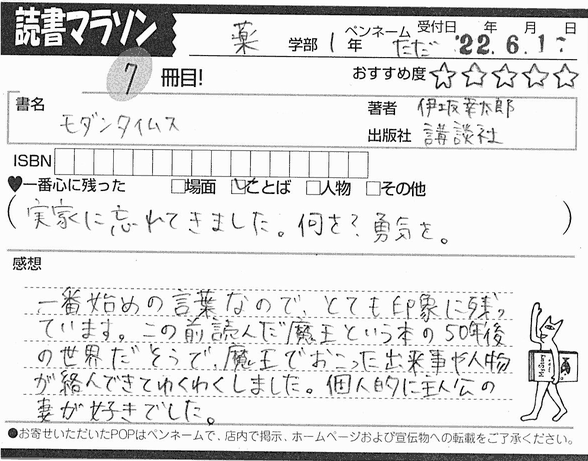 読書マラソン
薬 学部 1年 ペンネーム ただ 受付日 年 月 日 '22.6.1
7 冊目! おすすめ度☆☆☆☆☆
書名 モダンタイムス
著者 伊坂幸太郎
出版社 講談社
ISBN
♥一番心に残った □場面 ☑ことば □人物 □その他
(実家に忘れてきました。何を?勇気を。)
感想
一番始めの言葉なので、とても印象に残っ
ています。この前読んだ魔王という本の50年後
の世界だそうで、魔王でおこった出来事や人物
が絡んできてわくわくしました。個人的に主人公の
妻が好きでした。
●お寄せいただいたPOPはペンネームで、店内で掲示、ホームページおよび宣伝物への転載をご了承ください。